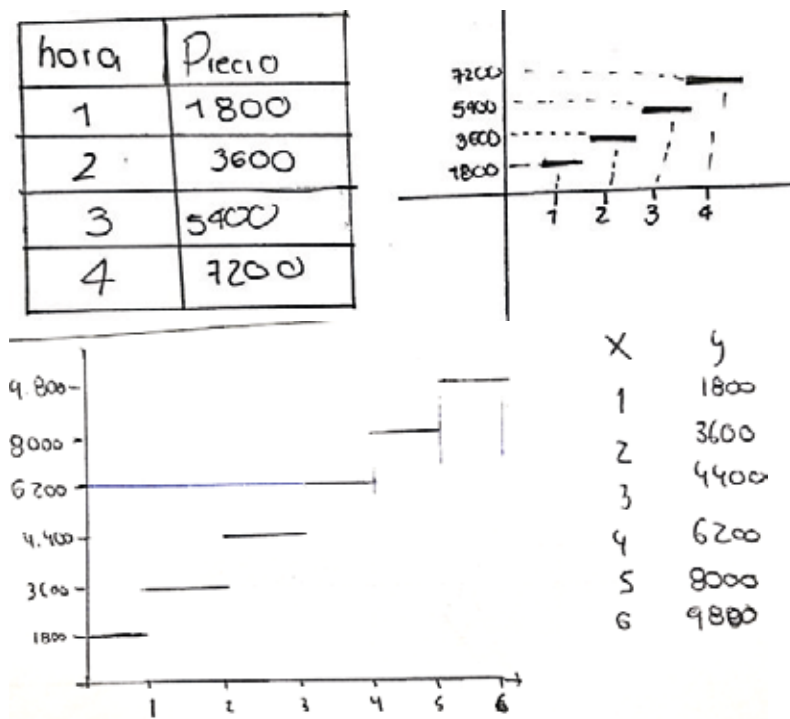 hora Precio
1 1800
2 3600
3 5400
4 7200
7200
5400
3600
1800
1 2 3 4
9.800
8000
6200
4.400
3600
1800
1 2 3 4 5 6
X y
1 1800
2 3600
3 4400
4 6200
5 8000
6 9800